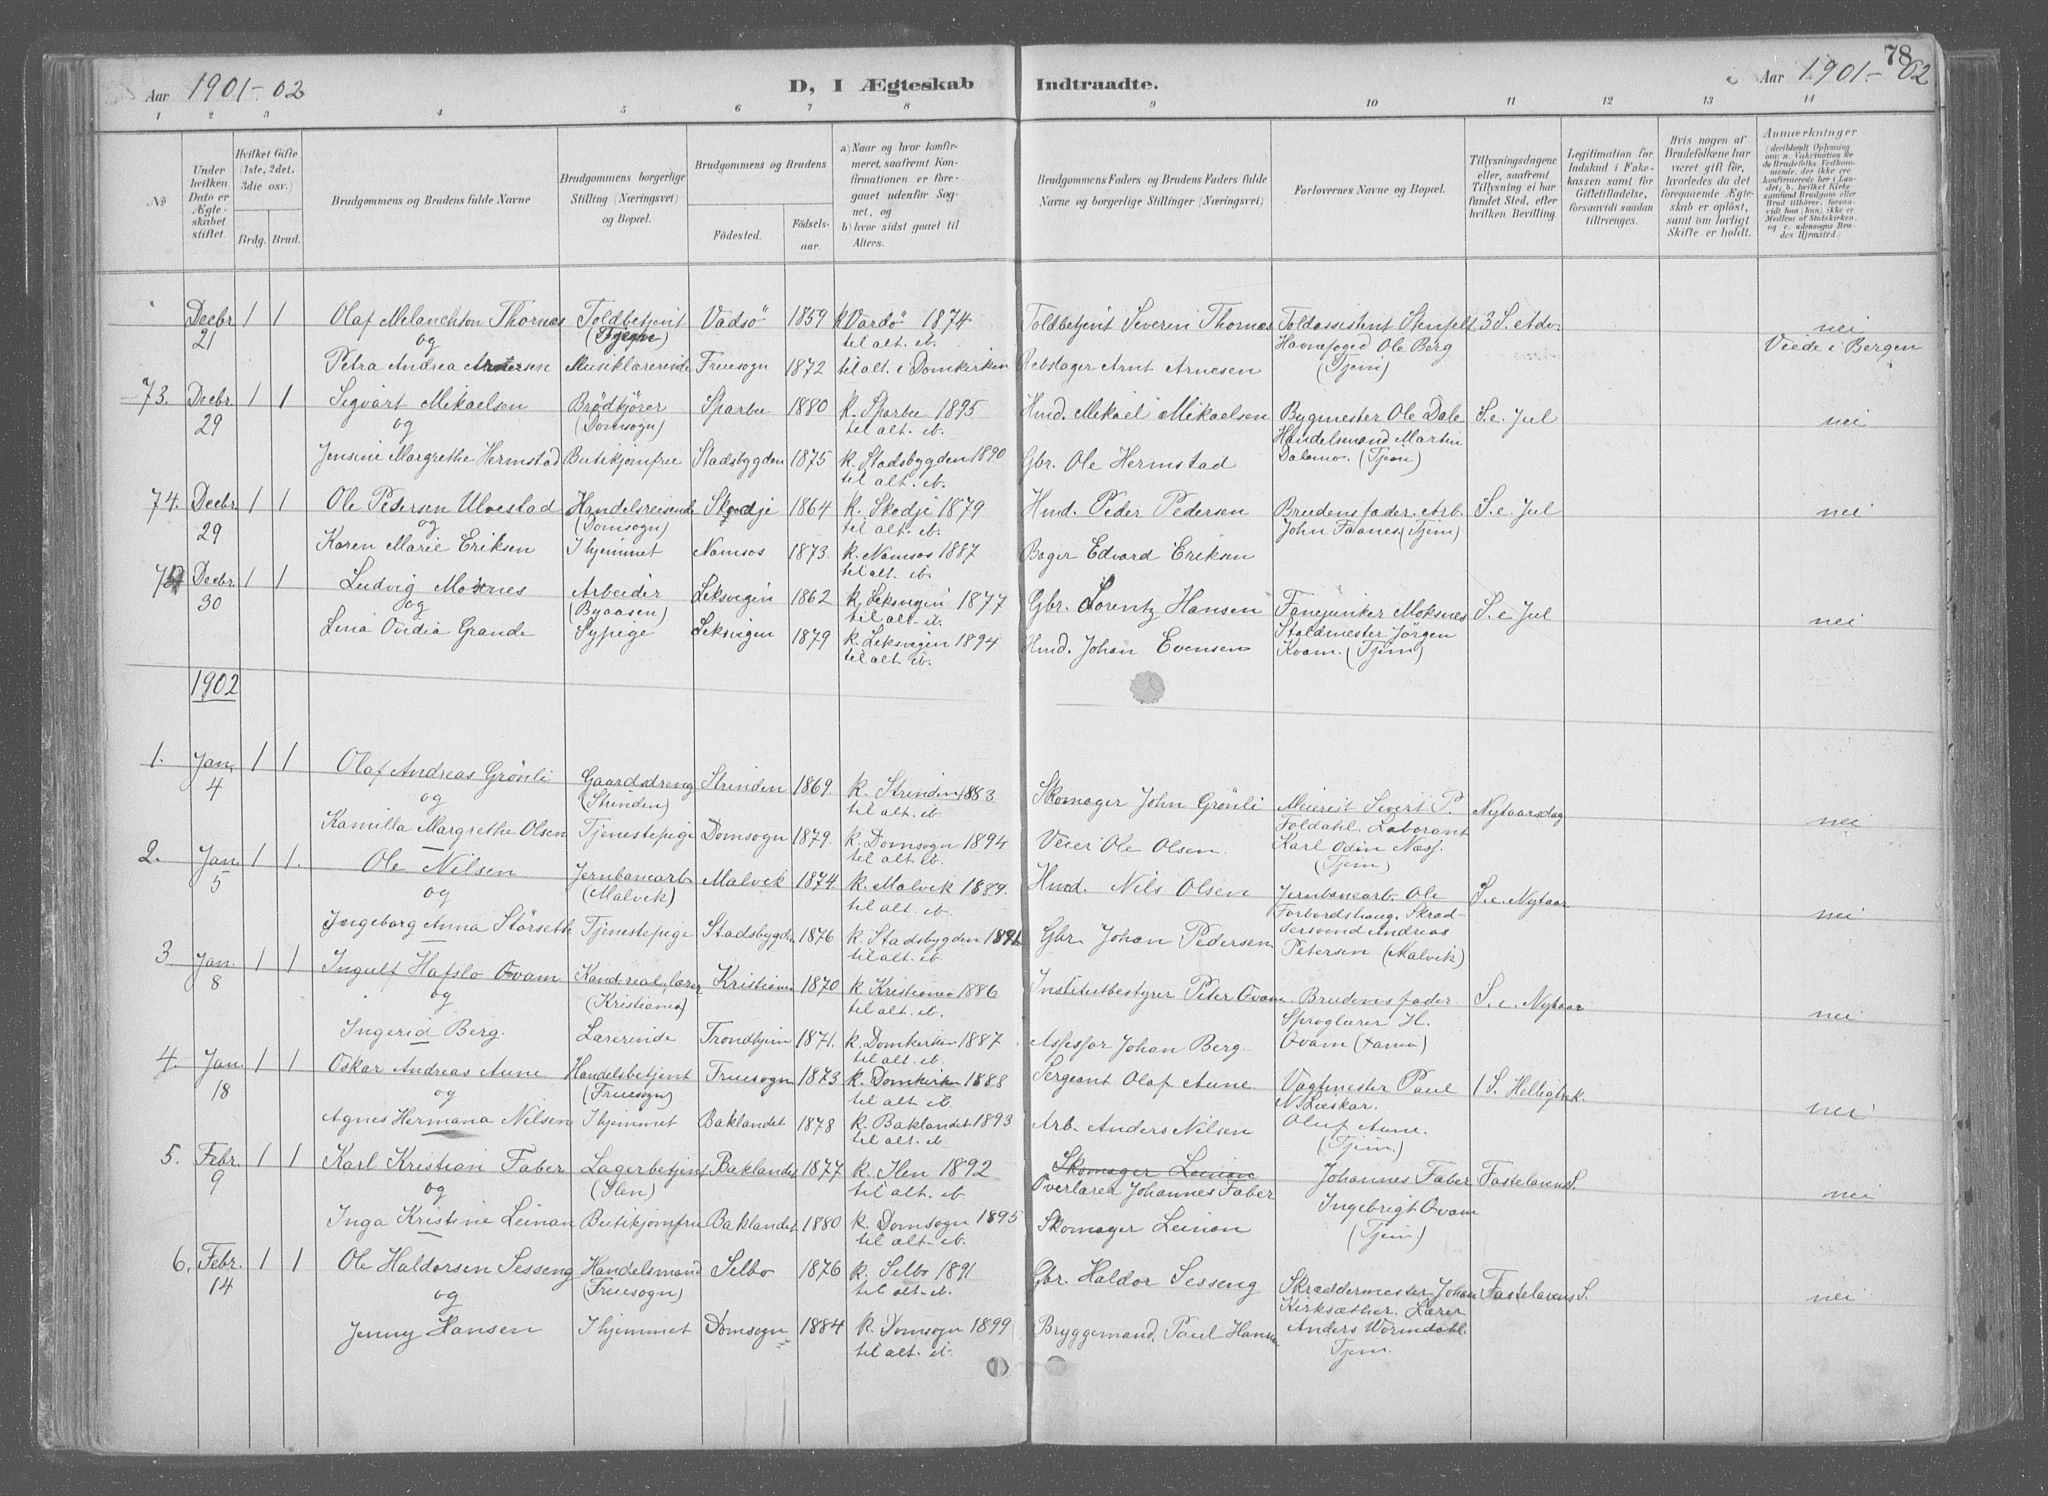 Aar 1901-02
D, I Ægteskab Indtraadte.
78
Aar 1901-02
1 2 3 4 5 6 7 8 9 10 11 12 13 14
No
Under hvilken Dato er Ægteskabet stiftet.
Hvilket Gifte (1ste, 2det, 3die osv.)
Brdg. Brud.
Brudgommens og Brudens fulde Navne
Brudgommens borgerlige Stilling (Næringsvei) og Bopæl.
Brudgommens og Brudens
Födested. Födselsaar.
a) Naar og hvor konfirmeret, saafremt Konfirmationen er foregaaet udenfor Sognet, og
b) hvor sidst gaaet til Alters.
Brudgommens Faders og Brudens Faders fulde Navne og borgerlige Stillinger (Næringsvei)
Forlovernes Navne og Bopæl.
Tillysningsdagene eller, saafremt Tillysning ei har fundet Sted, efter hvilken Bevilling.
Legitimation for Indskud i Fakekassen samt for Giftetilladelse, forsaavidt saadan tiltrænges.
Hvis nogen af Brudefolkene har været gift för, hvorledes da det foregaaende Ægteskab er oplöst, samt om lovligt Skifte er holdt.
Anmærkninger
Decbr 21 1 1 Olaf Melanchton Thornæs Toldbetjent Vadsö 1859 k Vardö 1874 Toldbetjent Severin Thornæs Toldassistent Stenfelt 3 S. Adv. nei
og til alt. ib. Havnefoged Ole Berg Viede i Bergen
Petra Andrea Arntsen Musiklærerinde Fruesogn 1872 til alt. i Domkirken Rebslager Arnt Arnesen (Tjem)
73. Decbr 29 1 1 Sigvart Mikaelsen Brödkjörer Sparbu 1880 k. Sparbu 1895 Hmd. Mikael Mikaelsen Bygmester Ole Dale S. e. Jul nei
og (Domsogn) til alt. ib. Handelsmand Martin
Jensine Margrethe Hermstad Butikjomfru Stadsbygden 1875 k. Stadsbygden 1890 Gbr. Ole Hermstad Dalamo. (Tjem)
til alt. ib.
74. Decbr 29 1 1 Ole Petersen Ulvestad Handelsreisende Skodje 1864 k. Skodje 1879 Hmd. Peder Pedersen Brudens fader. Arb. S. e. Jul nei
og (Domsogn) til alt. ib. John Faanes (Tjem)
Karen Marie Eriksen I hjemmet Namsos 1873. k. Namsos 1887 Bager Edvard Eriksen
til alt. ib.
75 Decbr. 30 1 1 Ludvig Moksnes Arbeider Leksvigen 1862 k. Leksvigen 1877 Gbr. Lorentz Hansen Fanejunker Moksnes S. e. Jul nei
og (Byaasen) til alt. ib. Staldmester Jörgen
Lina Ovidia Grande Sypige Leksvigen 1879 k. Leksvigen 1894 Hmd. Johan Evensen Kvam. (Tjem)
til alt. ib.
1902
1. Jan. 4 1 1 Olaf Andreas Grönli Gaardsdreng Strinden 1869. k. Strinden 1883 Skomager John Grönli Meierist Sivert P. Nytaarsdag nei
og (Strinden) til alt. ib. Foldahl. Laborant
Kamilla Margrethe Olsen Tjenestepige Domsogn 1879. k. Domsogn 1894 Veier Ole Olsen. Karl Odin Næss.
til alt. ib. (Tjem)
2. Jan. 5 1 1. Ole Nilsen Jernbanearb. Malvik 1874. k. Malvik 1889. Hmd. Nils Olsen Jernbanearb. Ole S. e. Nytaar nei
og (Malvik) til alt. ib. Forbordshaug. Skræd-
Ingeborg Anna Störseth Tjenestepige Stadsbygden 1876 k. Stadsbygden 1891 Gbr. Johan Pedersen dersvend Andreas
til alt. ib. Petersen (Malvik)
3 Jan. 8 1 1 Ingulf Hafslo Qvam Kand. real, lærer Kristiania 1870 k Kristiania 1886 Institutbestyrer Peter Qvam Brudens fader. S. e. Nytaar nei
og (Kristiania) til alt. ib. Sproglærer H.
Ingerid Berg. Lærerinde Trondhjem 1871. k. Domkirken 1887 Assessor Johan Berg. Qvam
til alt. ib.
4. Jan. 18 1 1 Oskar Andreas Aune Handelsbetjent Fruesogn 1873 k. Domkirken 1888 Sergeant Olaf Aune Vagtmester Paul 1 S. Helligtrek. nei
og (Fruesogn) til alt. ib. N. Lieskar.
Agnes Hermana Nilsen I hjemmet Baklandet 1878 k. Baklandet 1893 Arb. Anders Nilsen Oluf Aune.
til alt. ib. (Tjem.)
5. Febr. 9 1 1 Karl Kristian Faber Lagerbetjent Baklandet 1877 k. Ilen 1892 Skomager Leinan Johannes Faber Fastelavens S. nei
og (Ilen) til alt. ib. Overlærer Johannes Faber Ingebrigt Qvam
Inga Kristine Leinan Butikjomfru Baklandet 1880 k. Domsogn 1895 Skomager Leinan (Tjem.)
til alt. ib.
6. Febr. 14 1 1 Ole Haldorsen Sesseng Handelsmand Selbo 1876 k. Selbo 1891 Gbr. Haldor Sesseng Skræddermester Johan Fastelavens S. nei
og (Fruesogn) til alt. ib. Kirksæther. Lærer
Jenny Hansen I hjemmet Domsogn 1884 k. Domsogn 1899 Bryggemand. Paul Hansen Anders Wormdahl.
til alt. ib. Tjem.